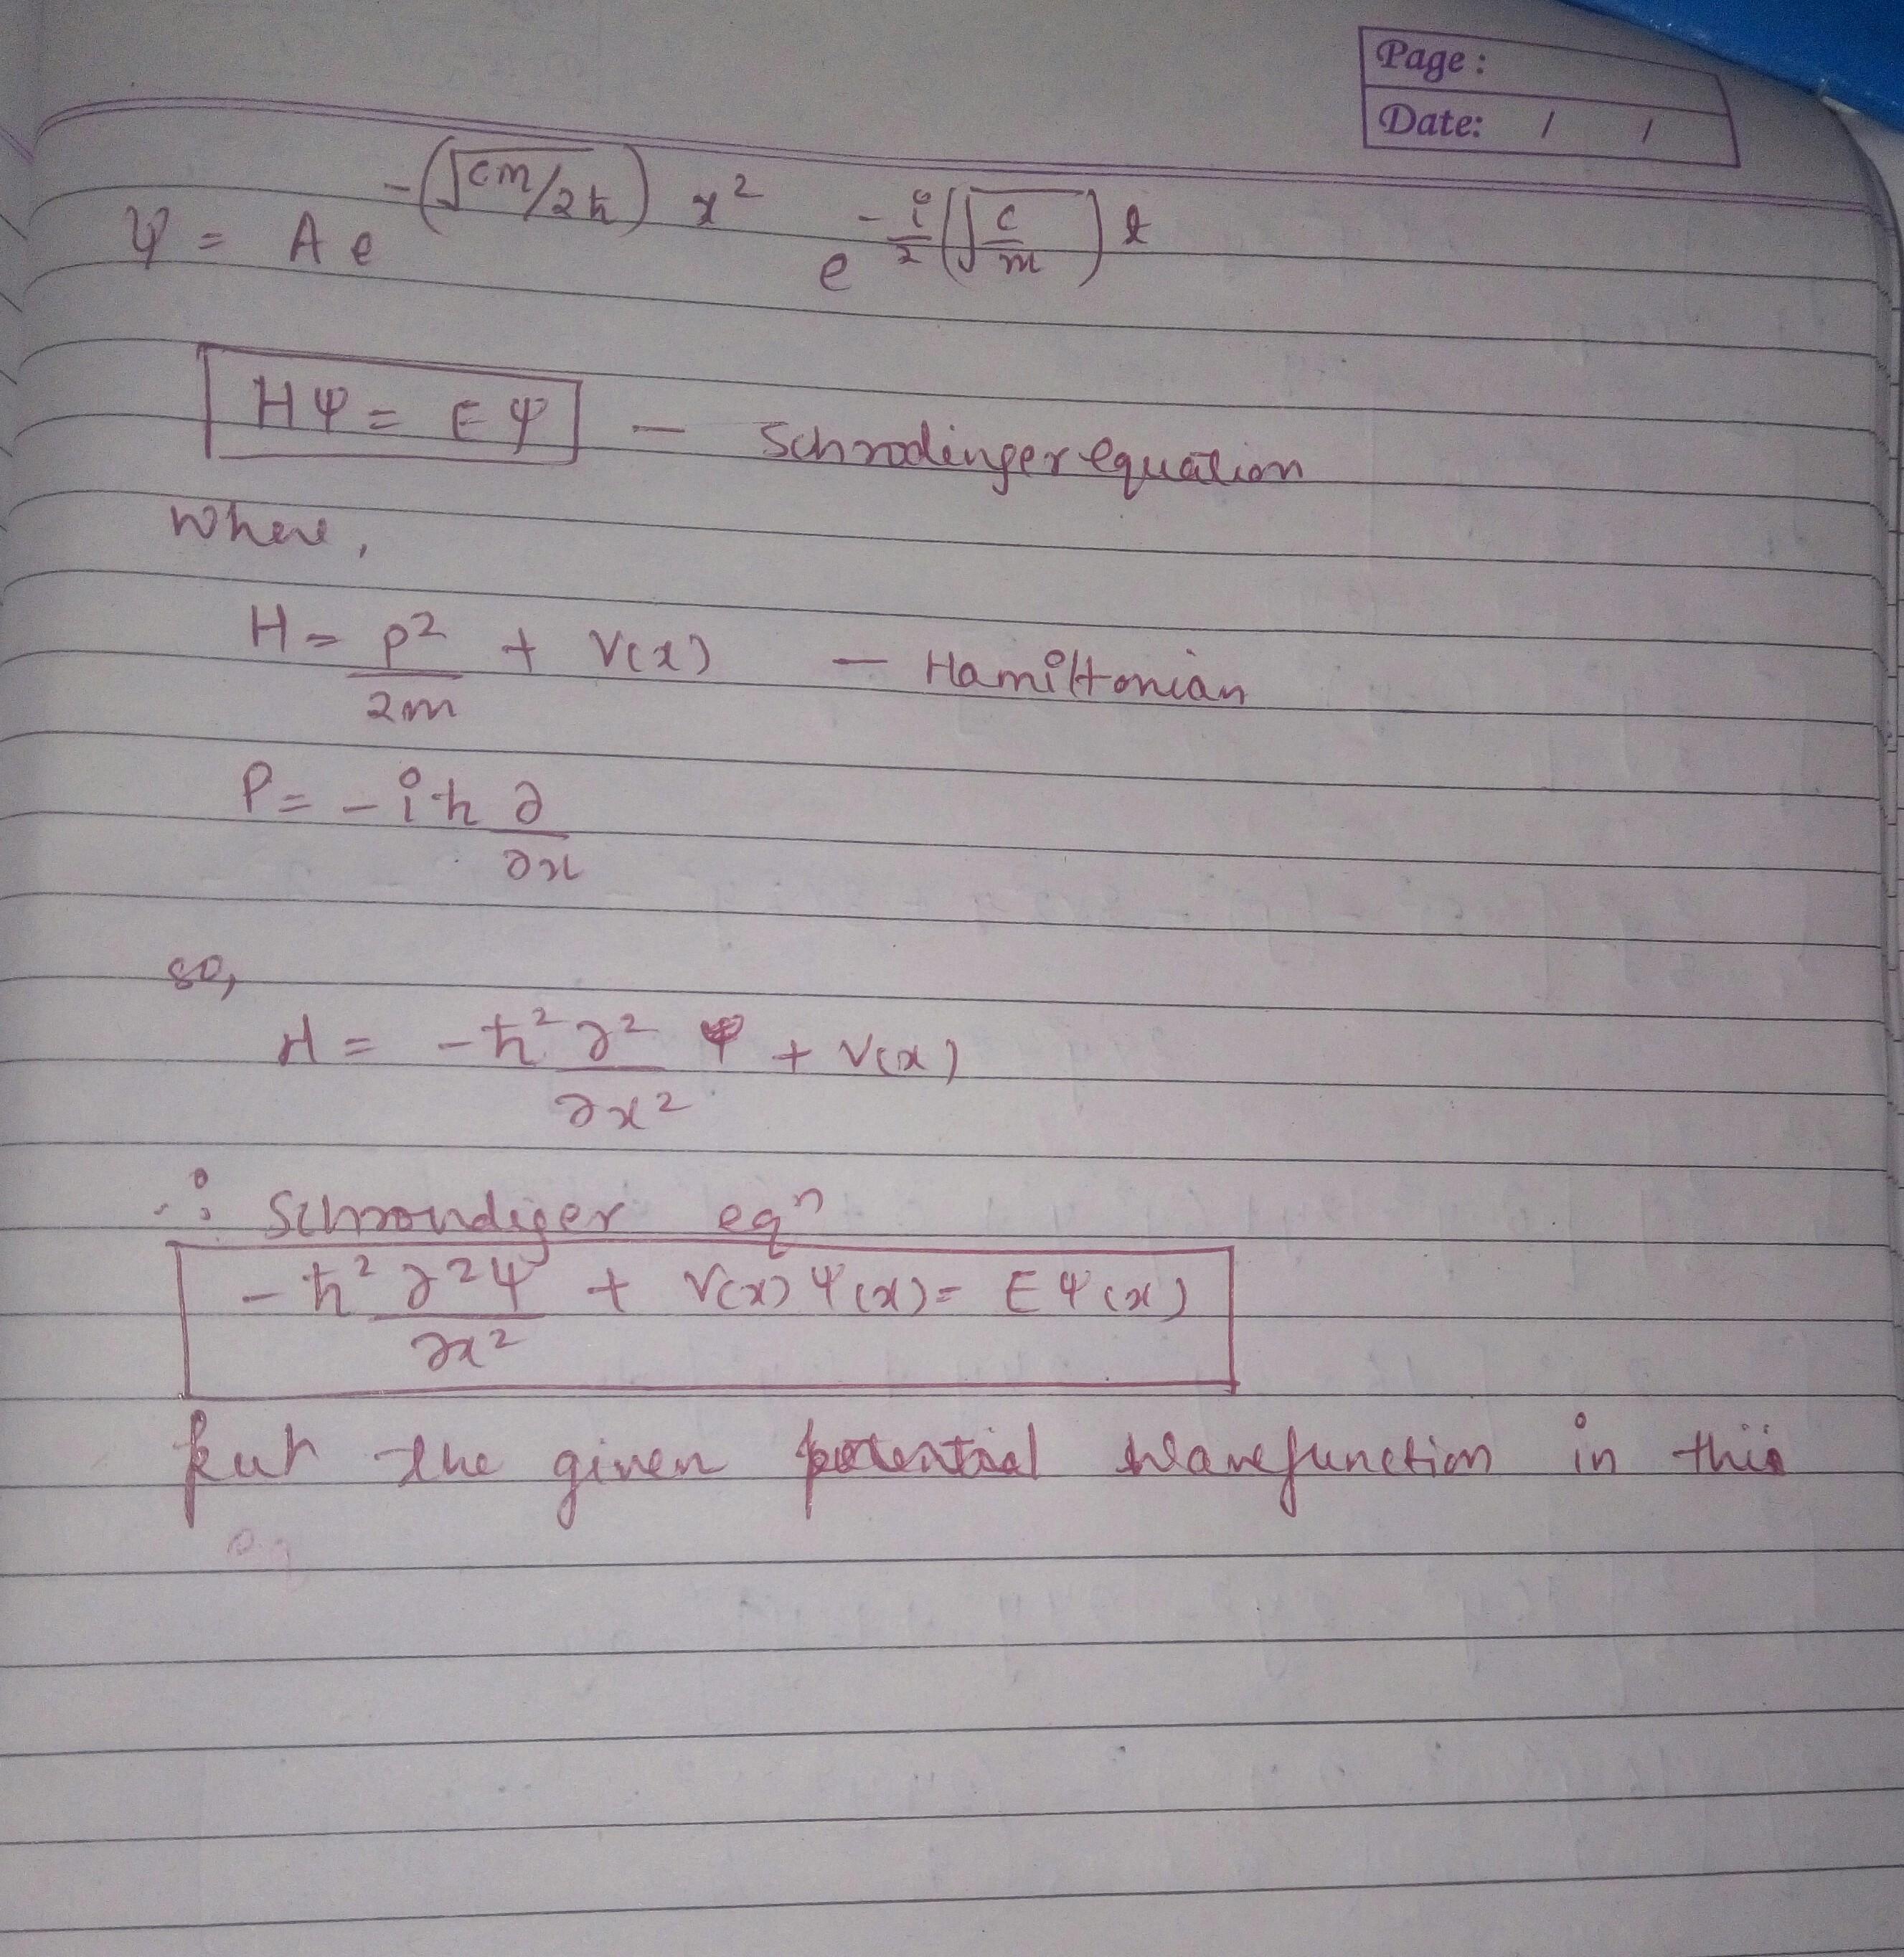 Page:
Date: / /
ψ = A e^-(√cm/2ħ) x² e^-i/2(√c/m) t
Hψ = Eψ — Schrodinger equation
Where,
H = p²/2m + V(x) — Hamiltonian
P = -iħ ∂/∂x
so,
H = -ħ² ∂²/∂x² ψ + V(x)
∴ Schrondiger eqⁿ
-ħ² ∂²ψ/∂x² + V(x) ψ(x) = E ψ(x)
Put the given potential wavefunction in this